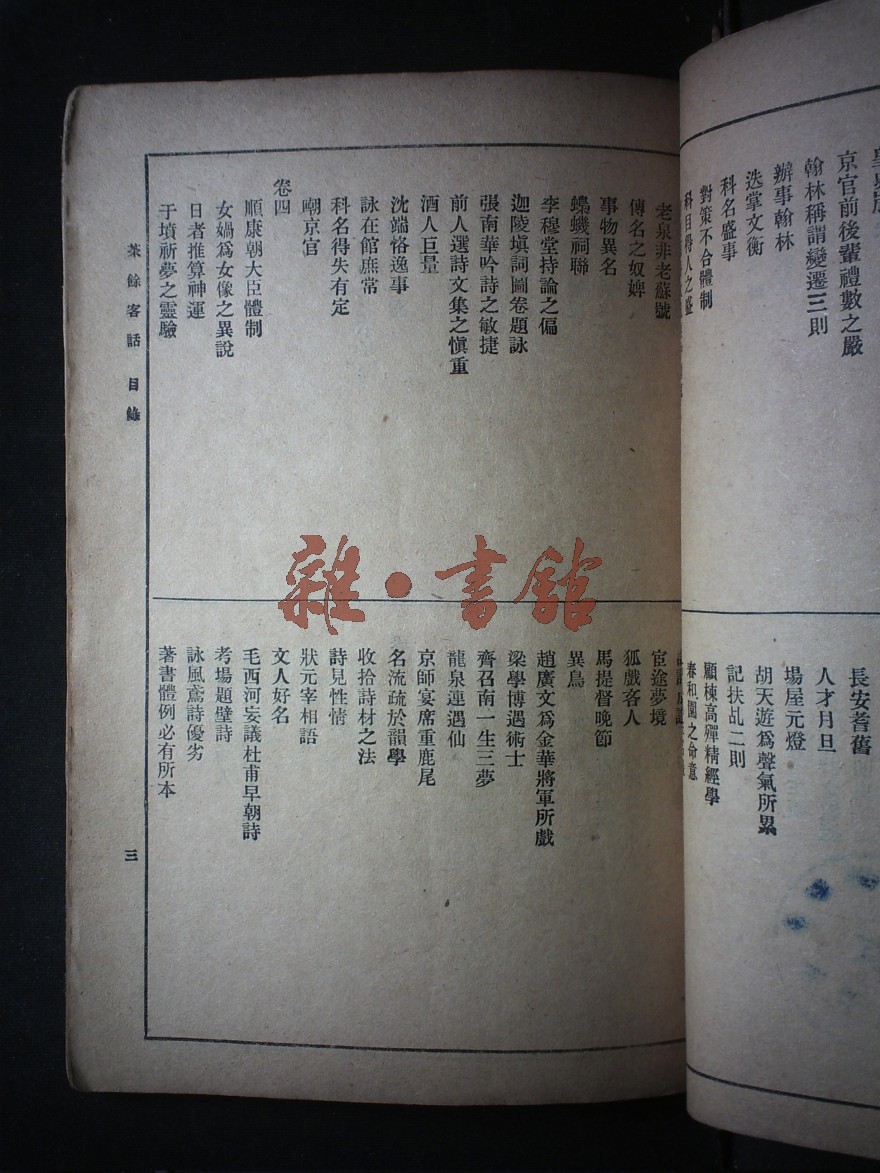 京官前後輩禮數之嚴
翰林稱謂變遷三則
辦事翰林
迭掌文衡
科名盛事
對策不合體制
科目得人之盛
長安耆舊
人才月旦
場屋元燈
胡天遊爲聲氣所累
記扶乩二則
顧棟高殫精經學
春和園之命意
老泉非老蘇號
傳名之奴婢
事物異名
蟂蟣祠聯
李穆堂持論之偏
迦陵填詞圖卷題詠
張南華吟詩之敏捷
前人選詩文集之愼重
酒人巨量
沈端恪逸事
詠在館庶常
科名得失有定
嘲京官
卷四
順康朝大臣體制
女媧爲女像之異說
日者推算神運
于墳祈夢之靈驗
宦途夢境
狐戲客人
馬提督晚節
異鳥
趙廣文爲金華將軍所戲
梁學博遇術士
齊召南一生三夢
龍泉連遇仙
京師宴席重鹿尾
名流疏於韻學
收拾詩材之法
詩見性情
狀元宰相語
文人好名
毛西河妄議杜甫早朝詩
考場題壁詩
詠風鳶詩優劣
著書體例必有所本
茶餘客話 目錄
三
雜·書館